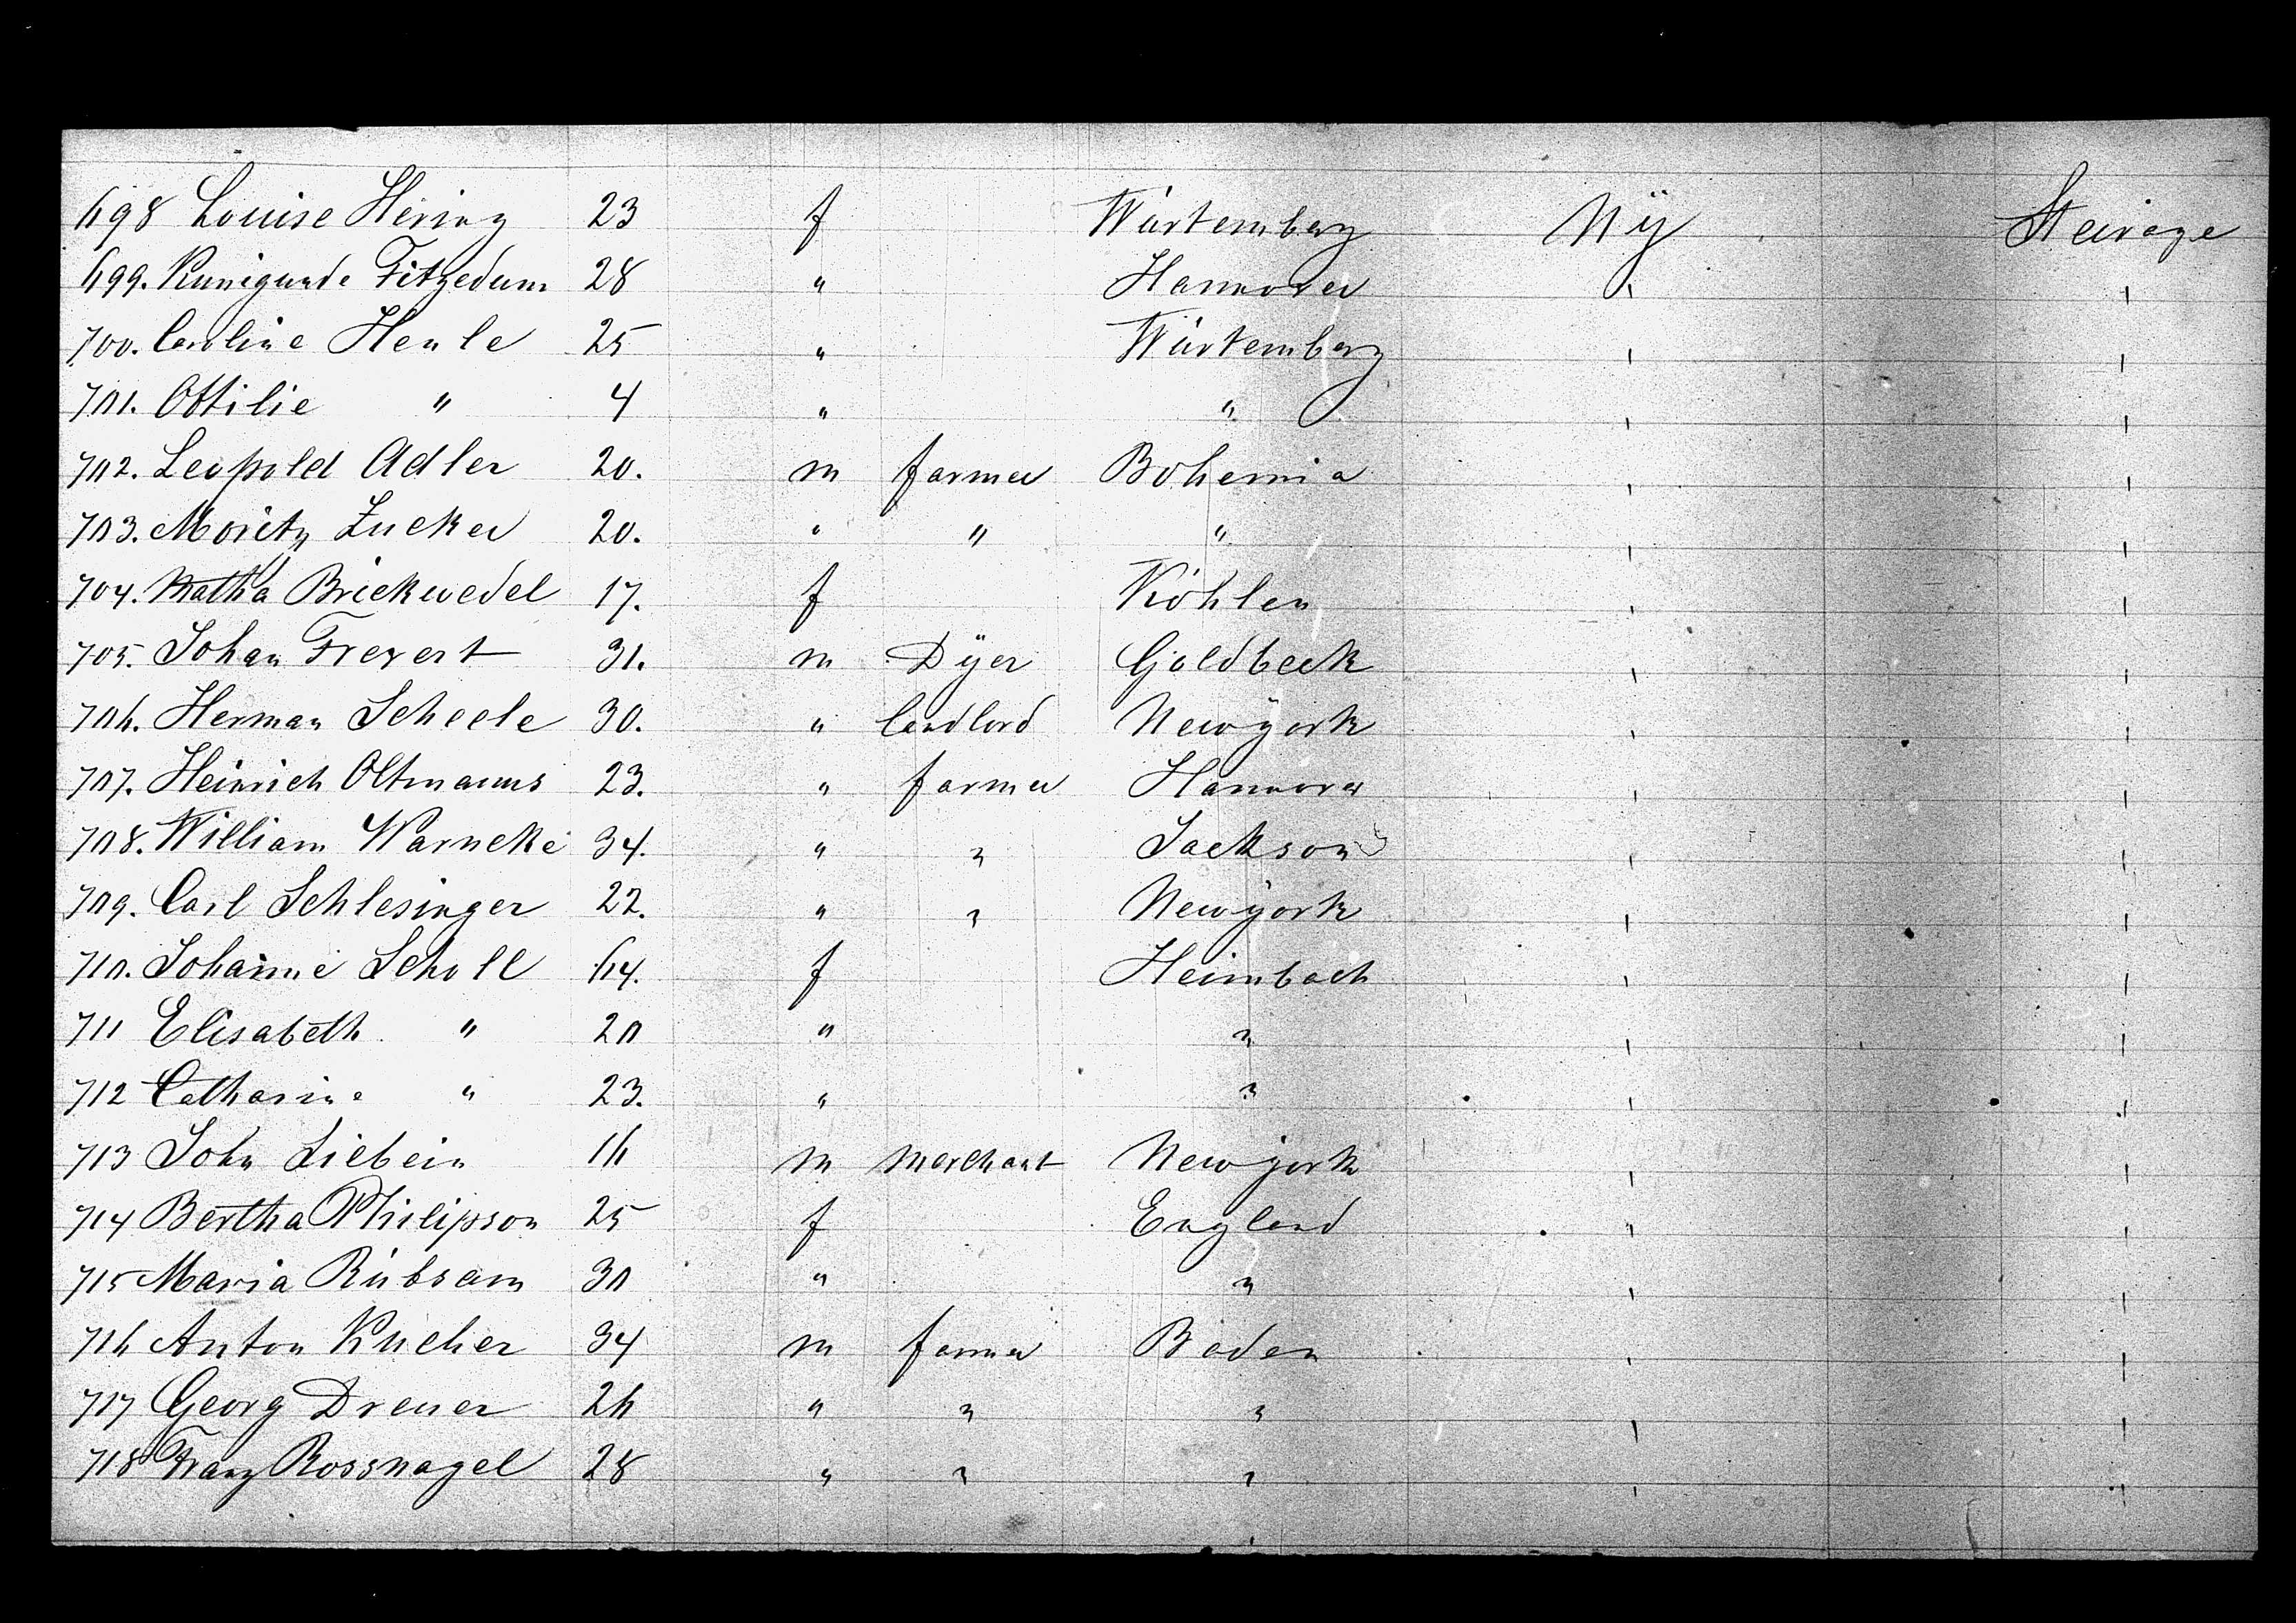 698 Louise Hering 23 f Würtemberg Nÿ Steirage
699. Kunigunde Fitzedum 28 " Hannover
700. Caroline Henle 25 " Würtemberg
701. Ottilie " 4 " "
702. Leopold Adler 20. m farmer Bohemia
703. Moritz Zucker 20. " " "
704. Matha Brickwedel 17. f Köhlen
705. Johan Frevert 31. m Dÿer Goldbeck
706. Herman Scheele 30. " landlord Newÿork
707. Heinrich Oltmanns 23. " farmer Hannover
708. William Warneke 34. " " Jackson
709. Carl Schlesinger 22. " " Newÿork
710. Johanne Scholl 64. f Heimbach
711 Elisabeth " 20 " "
712 Catharine " 23. " "
713 John Liebein 16 m merchant Newÿork
714 Bertha Philipson 25 f England
715 Maria Rübsam 30 " "
716 Anton Kucher 34 m farmer Baden
717 Georg Dreuer 26 " " "
718 Franz Rossnagel 28 " " "